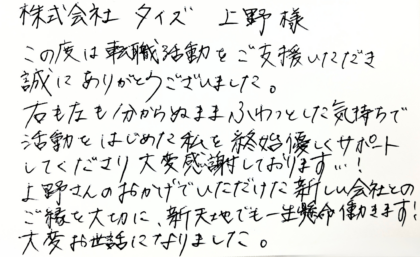 株式会社 タイズ 上野様
この度は転職活動をご支援いただき
誠にありがとうございました。
右も左も分からぬままふわっとした気持ちで
活動をはじめた私を終始優しくサポート
してくださり大変感謝しております…!
上野さんのおかげでいただけた新しい会社との
ご縁を大切に、新天地でも一生懸命働きます!
大変お世話になりました。